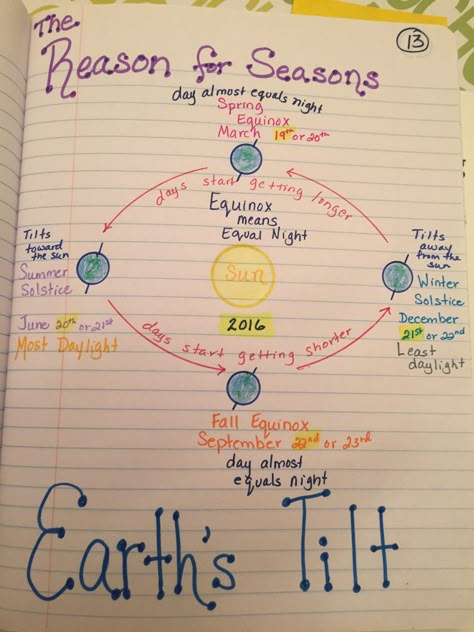 The
13
Reason for Seasons
day almost equals night
Spring
Equinox
March 19th or 20th
days start getting longer
Equinox
means
Equal Night
Tilts
toward
the sun
Summer
Solstice
June 20th or 21st
Most Daylight
Sun
2016
Tilts
away
from the
sun
Winter
Solstice
December
21st or 22nd
Least
daylight
days start getting shorter
Fall Equinox
September 22nd or 23rd
day almost
equals night
Earth's Tilt